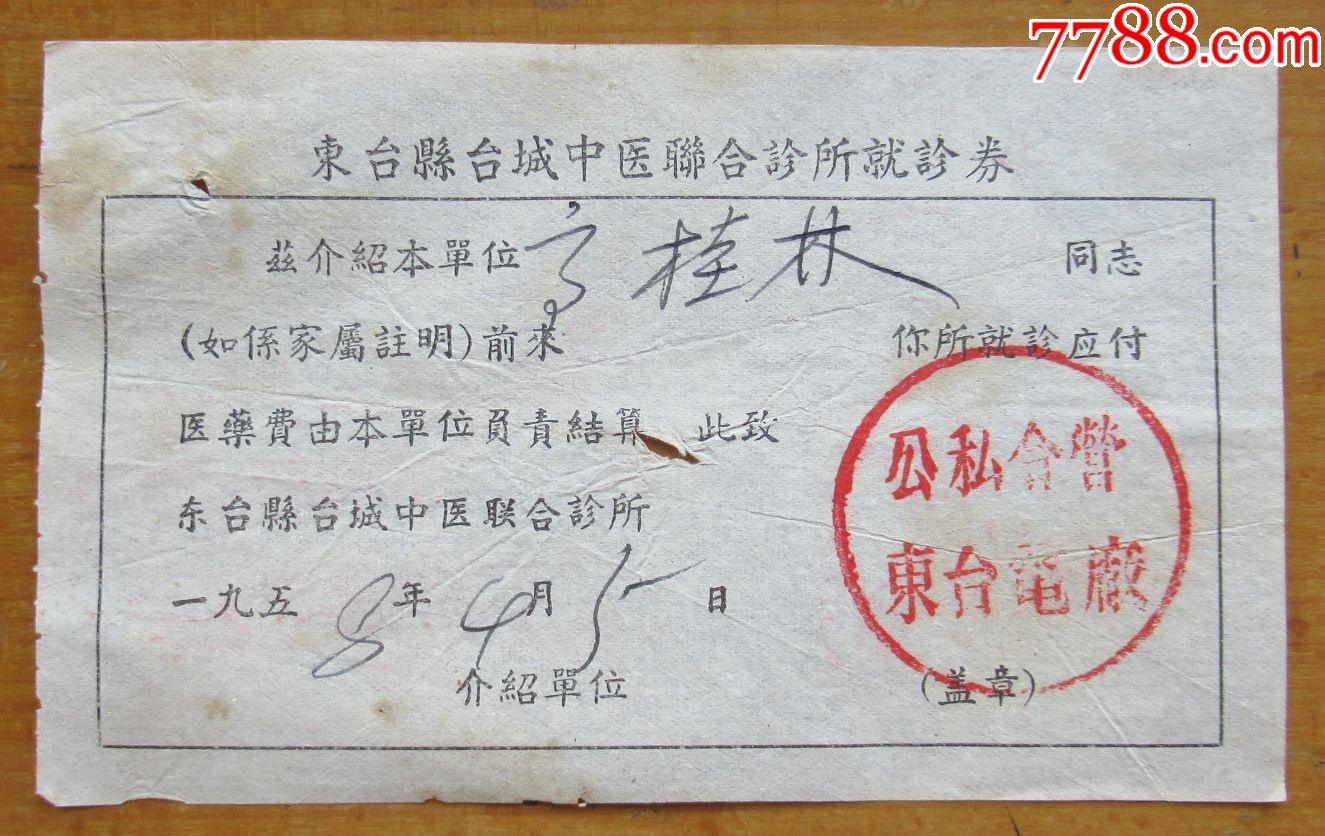 7788.com
東台縣台城中医聯合診所就診券
茲介紹本單位高桂林 同志
(如係家屬註明)前來 你所就診应付
医藥費由本單位負責結算 此致
东台縣台城中医联合診所
一九五8年4月5日
介紹單位 (盖章)
公私合營
東台電廠